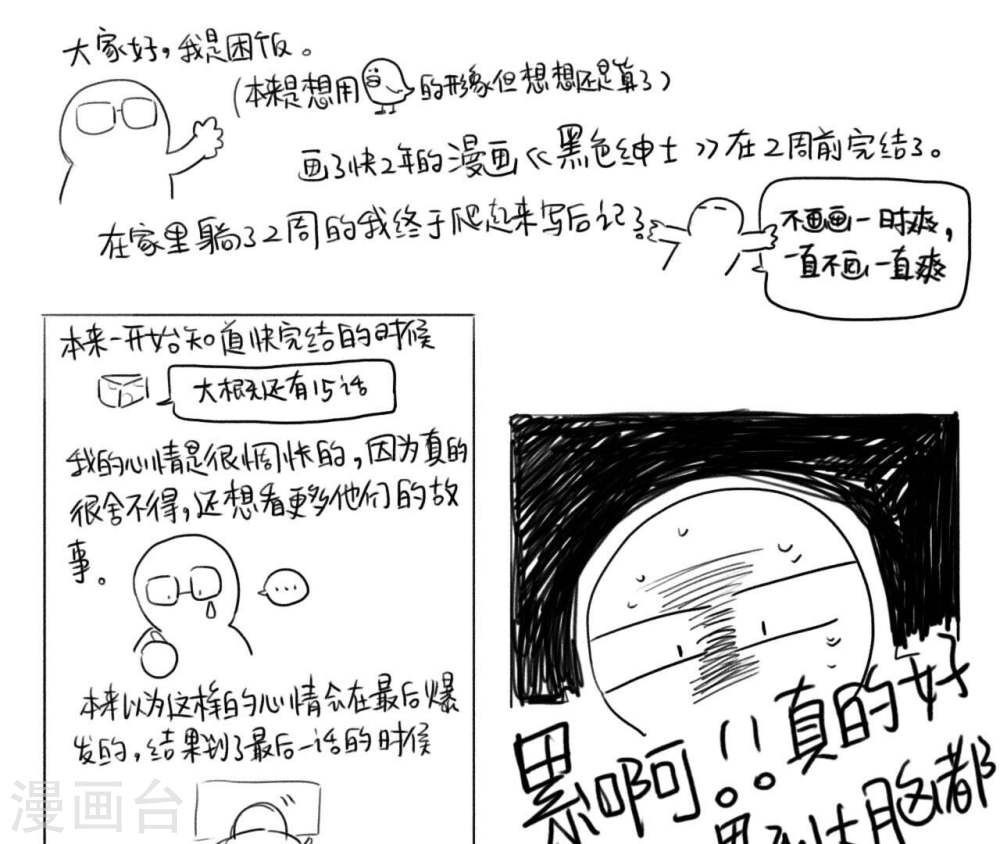 大家好,我是困饭。
(本来是想用 的形象但想想还是算了)
画了快2年的漫画《黑色绅士》在2周前完结了。
在家里躺了2周的我终于爬起来写后记了
不画画一时爽,
一直不画一直爽
本来一开始知道快完结的时候
大概还有15话
我的心情是很惆怅的,因为真的
很舍不得,还想看更多他们的故
事。
...
本来以为这样的心情会在最后爆
发的,结果到了最后一话的时候
累啊!!真的好
脑都
漫画台